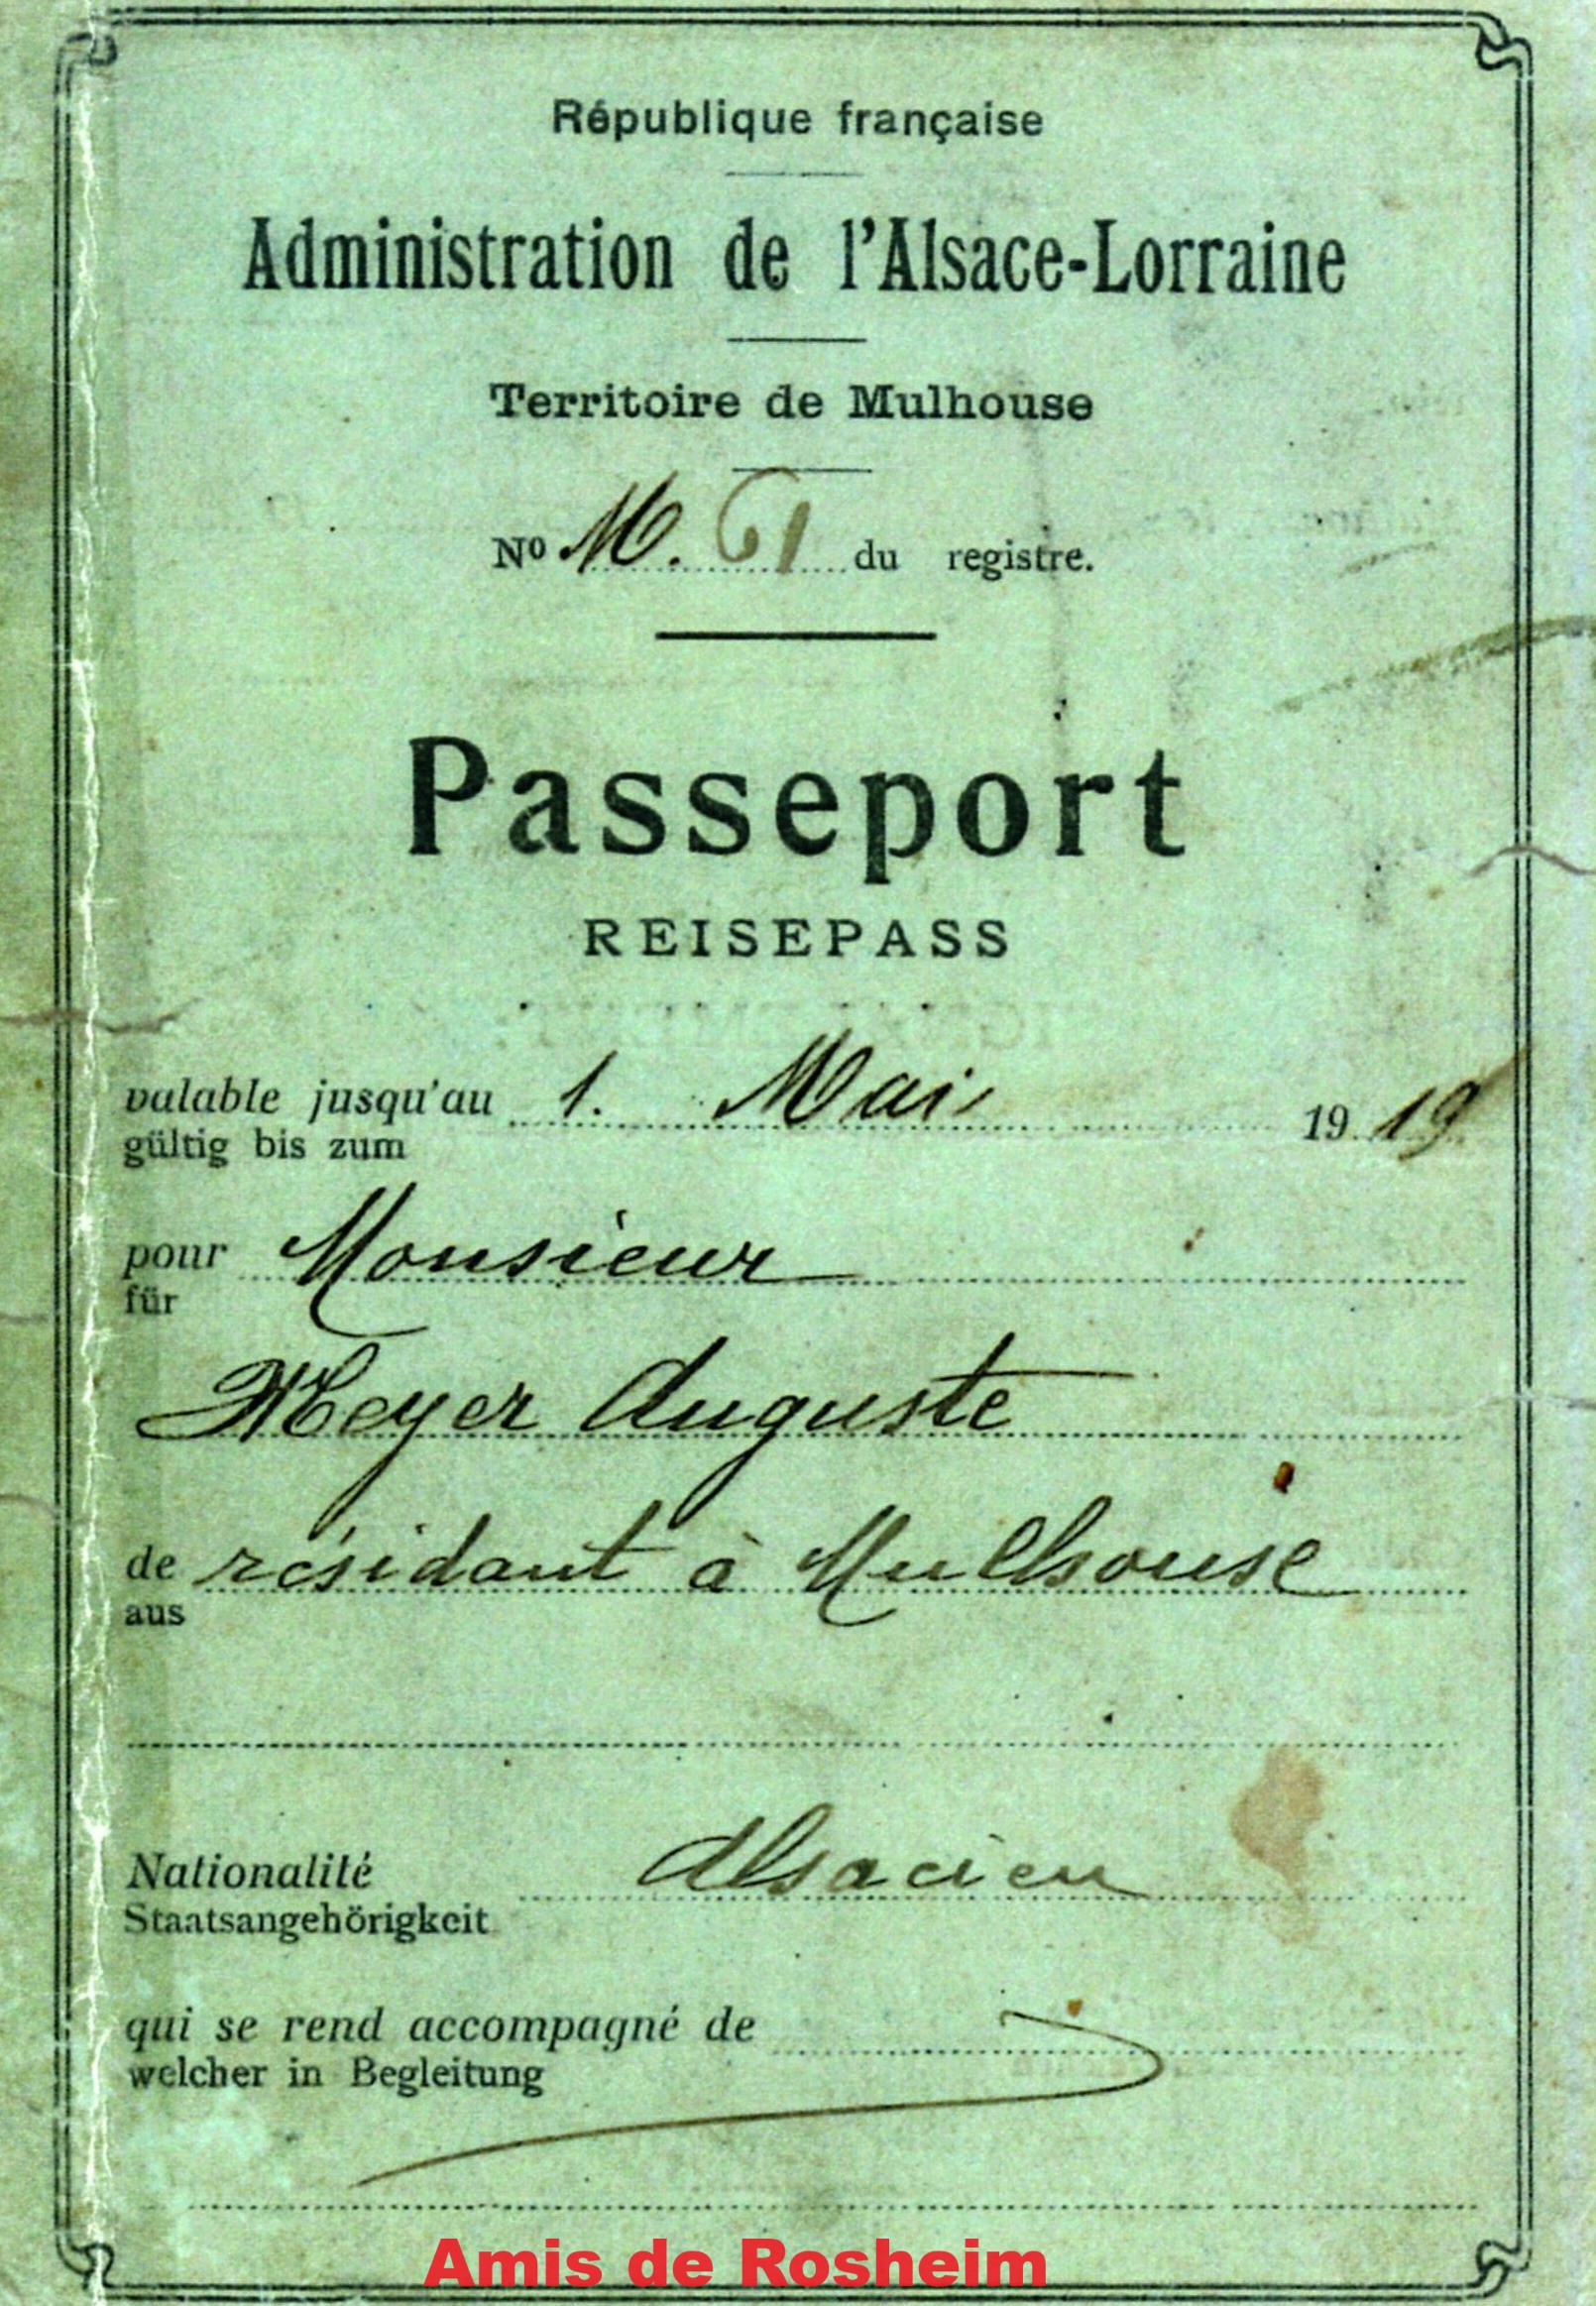 République française
Administration de l'Alsace-Lorraine
Territoire de Mulhouse
No M. 61 du registre.
Passeport
REISEPASS
valable jusqu'au 1. Mai 1919
gültig bis zum
pour Monsieur
für
Meyer Auguste
de résidant à Mulhouse
aus
Nationalité Alsacien
Staatsangehörigkeit
qui se rend accompagné de
welcher in Begleitung
Amis de Rosheim